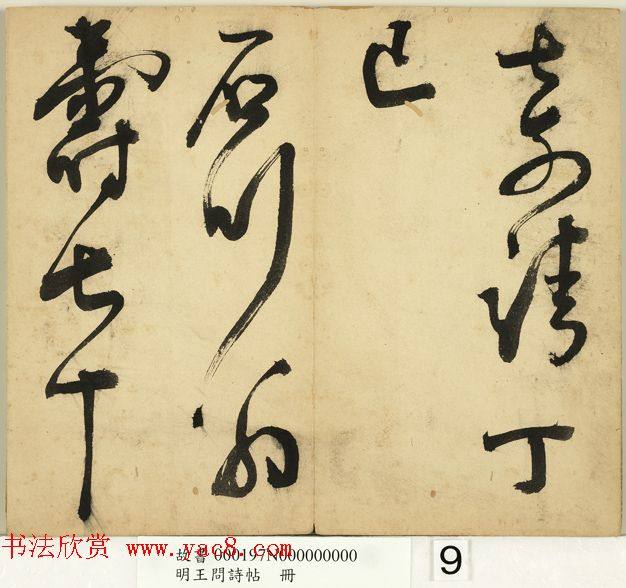 嘉靖丁
巳
石川翁
壽七十
书法欣赏 www.yac8.com
故書 000197N000000000
明王問詩帖 冊
9